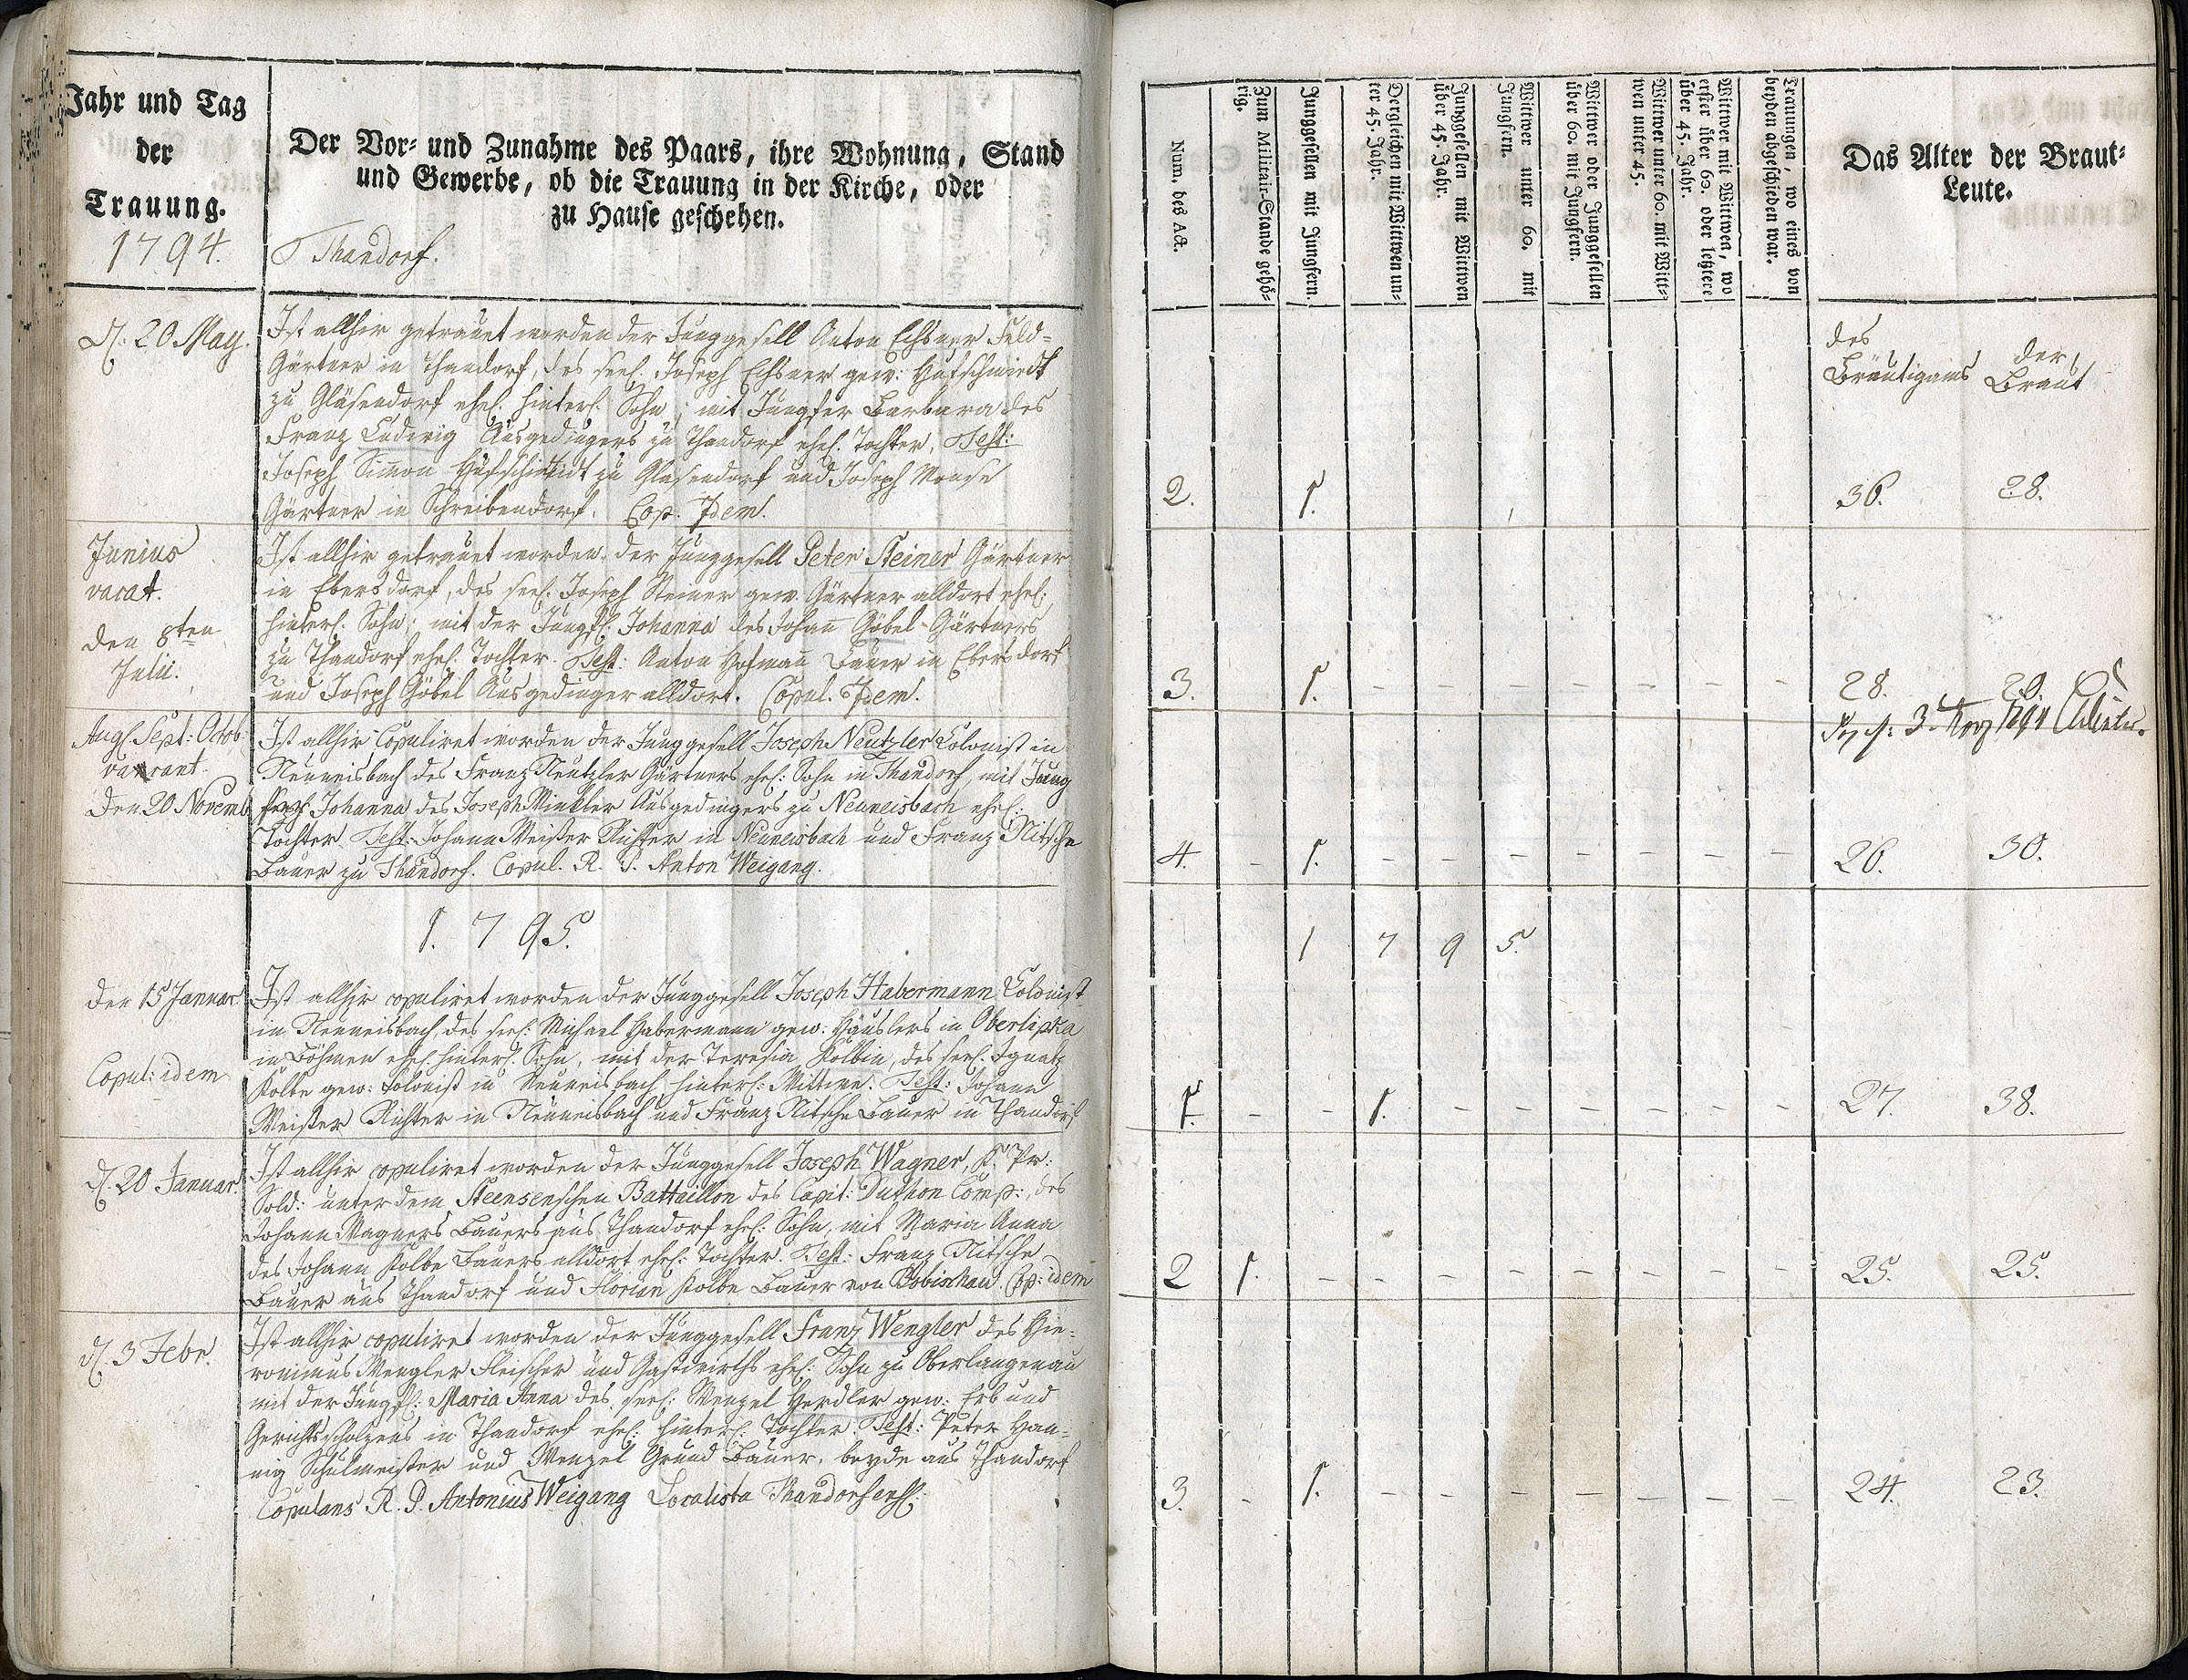 Jahr und Tag
der
Trauung.
1794.
Der Vor- und Zunahme des Paars, ihre Wohnung, Stand
und Gewerbe, ob die Trauung in der Kirche, oder
zu Hause geschehen.
Thandorf.
d. 20 May.
Ist allhir getrauet worden der Junggesell Anton Echsner Feld-
Gärtner in Thandorf, des seel. Joseph Echsner gew: Hufschmiedt
zu Gläsendorf ehel. hinterl. Sohn, mit Jungfer Barbara des
Franz Ludwig Ausgedingers zu Thandorf ehel. Tochter. Test:
Joseph Simon Hufschmidt zu Glasendorf und Joseph
Gärtner in Schreibendorf. Cop. Idem.
Junius
vacat.
den 8ten
Julii.
Ist allhir getrauet worden der Junggesell Peter Steiner Gärtner
in Ebersdorf, des seel. Joseph Steiner gew. Gärtner alldort ehel.
hinterl. Sohn; mit der Jungf. Johanna des Johan̅ Göbel Gärtners
zu Thandorf ehel. Tochter. Test: Anton Hofman̅ Bauer in Ebersdorf
und Joseph Göbel Ausgedinger alldort. Copul. Idem.
Aug. Sept: Octob
vacant.
Den 20 Novemb
Ist allhir Copuliret worden der Junggesell Joseph Neutzler Colonist in
Neuneisbach des Franz Neutzler Gärtners ehel: Sohn in Thandorf, mit Jung
fer Johanna des Joseph Winkler Ausgedingers zu Neuneisbach ehel:
Tochter Test: Johann Meister Richter in Neuneisbach und Franz Nitsche
Bauer zu Thandorf. Copul. R. P. Anton Weigang.
1. 7 95.
den 15 Januar
Copul: idem
Ist allhir copuliret worden der Junggesell Joseph Habermann Colonist
in Neuneisbach, des seel: Michael Habermann gew: Häuslers in Oberlipka
in Böhmen ehel. hinterl. Sohn, mit der Teresia Kolbin, des seel: Ignatz
Kolbe gew: Colonist in Neuneisbach hinterl: Wittwe. Test: Johann
Meister Richter in Neuneisbach und Franz Nitsche Bauer in Thandorf
d. 20 Januar
Ist allhir copuliret worden der Junggesell Joseph Wagner, K. Pr:
Sold: unter dem Steensenschen Battaillon des Capit: Duthon Comp:, des
Johann Wagners Bauers aus Thandorf ehel: Sohn, mit Maria Anna
des Johann Kolbe Bauers alldort ehel: Tochter. Test: Franz Nitsche
Bauer aus Thandorf und Florian Kolbe Bauer von Bobischau. Cop: idem
d. 3 Febr.
Ist allhir copuliret worden der Junggesell Franz Wengler des Hie-
ronimus Wengler Fleischer und Gastwirths ehel: Sohn zu Oberlangenau
mit der Jungf: Maria Anna des seel: Wenzel Herdler gew: Erb und
Gerichtsscholzens in Thandorf ehel: hinterl: Tochter. Test: Peter Han-
nig Schulmeister und Wenzel Grund Bauer, beyde aus Thandorf
Copulans R. P. Antonius Weigang Localista Thandorfens:
Num. des Act.
Zum Militair-Stande gehö-
rig.
Junggesellen mit Jungfern.
Dergleichen mit Wittwen un-
ter 45. Jahr.
Junggesellen mit Wittwen
über 45. Jahr.
Wittwer unter 60. mit
Jungfern.
Wittwer oder Junggesellen
über 60. mit Jungfern.
Wittwer unter 60. mit Witt-
wen unter 45.
Wittwer mit Wittwen, wo
erster über 60. oder letztere
über 45. Jahr.
Trauungen, wo eines von
beyden abgeschieden war.
Das Alter der Braut-
Leute.
des
Bräutigams
der
Braut
2. 1. 36. 28.
3. 1. – – – – – – – 28. 20.
4. – 1. – – – – – – – 26. 30.
1 7 9 5.
1. – – 1. – – – – – – 27. 38.
2 1. – – – – – – – – 25. 25.
3. – 1. – – – – – – – 24. 23.